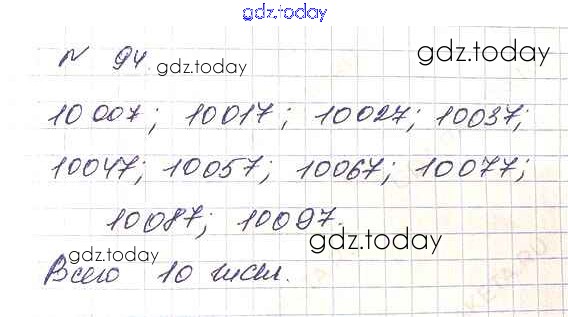 gdz.today
№ 94. gdz.today gdz.today
10007; 10017; 10027; 10037;
10047; 10057; 10067; 10077;
10087; 10097.
gdz.today gdz.today
Всего 10 чисел.